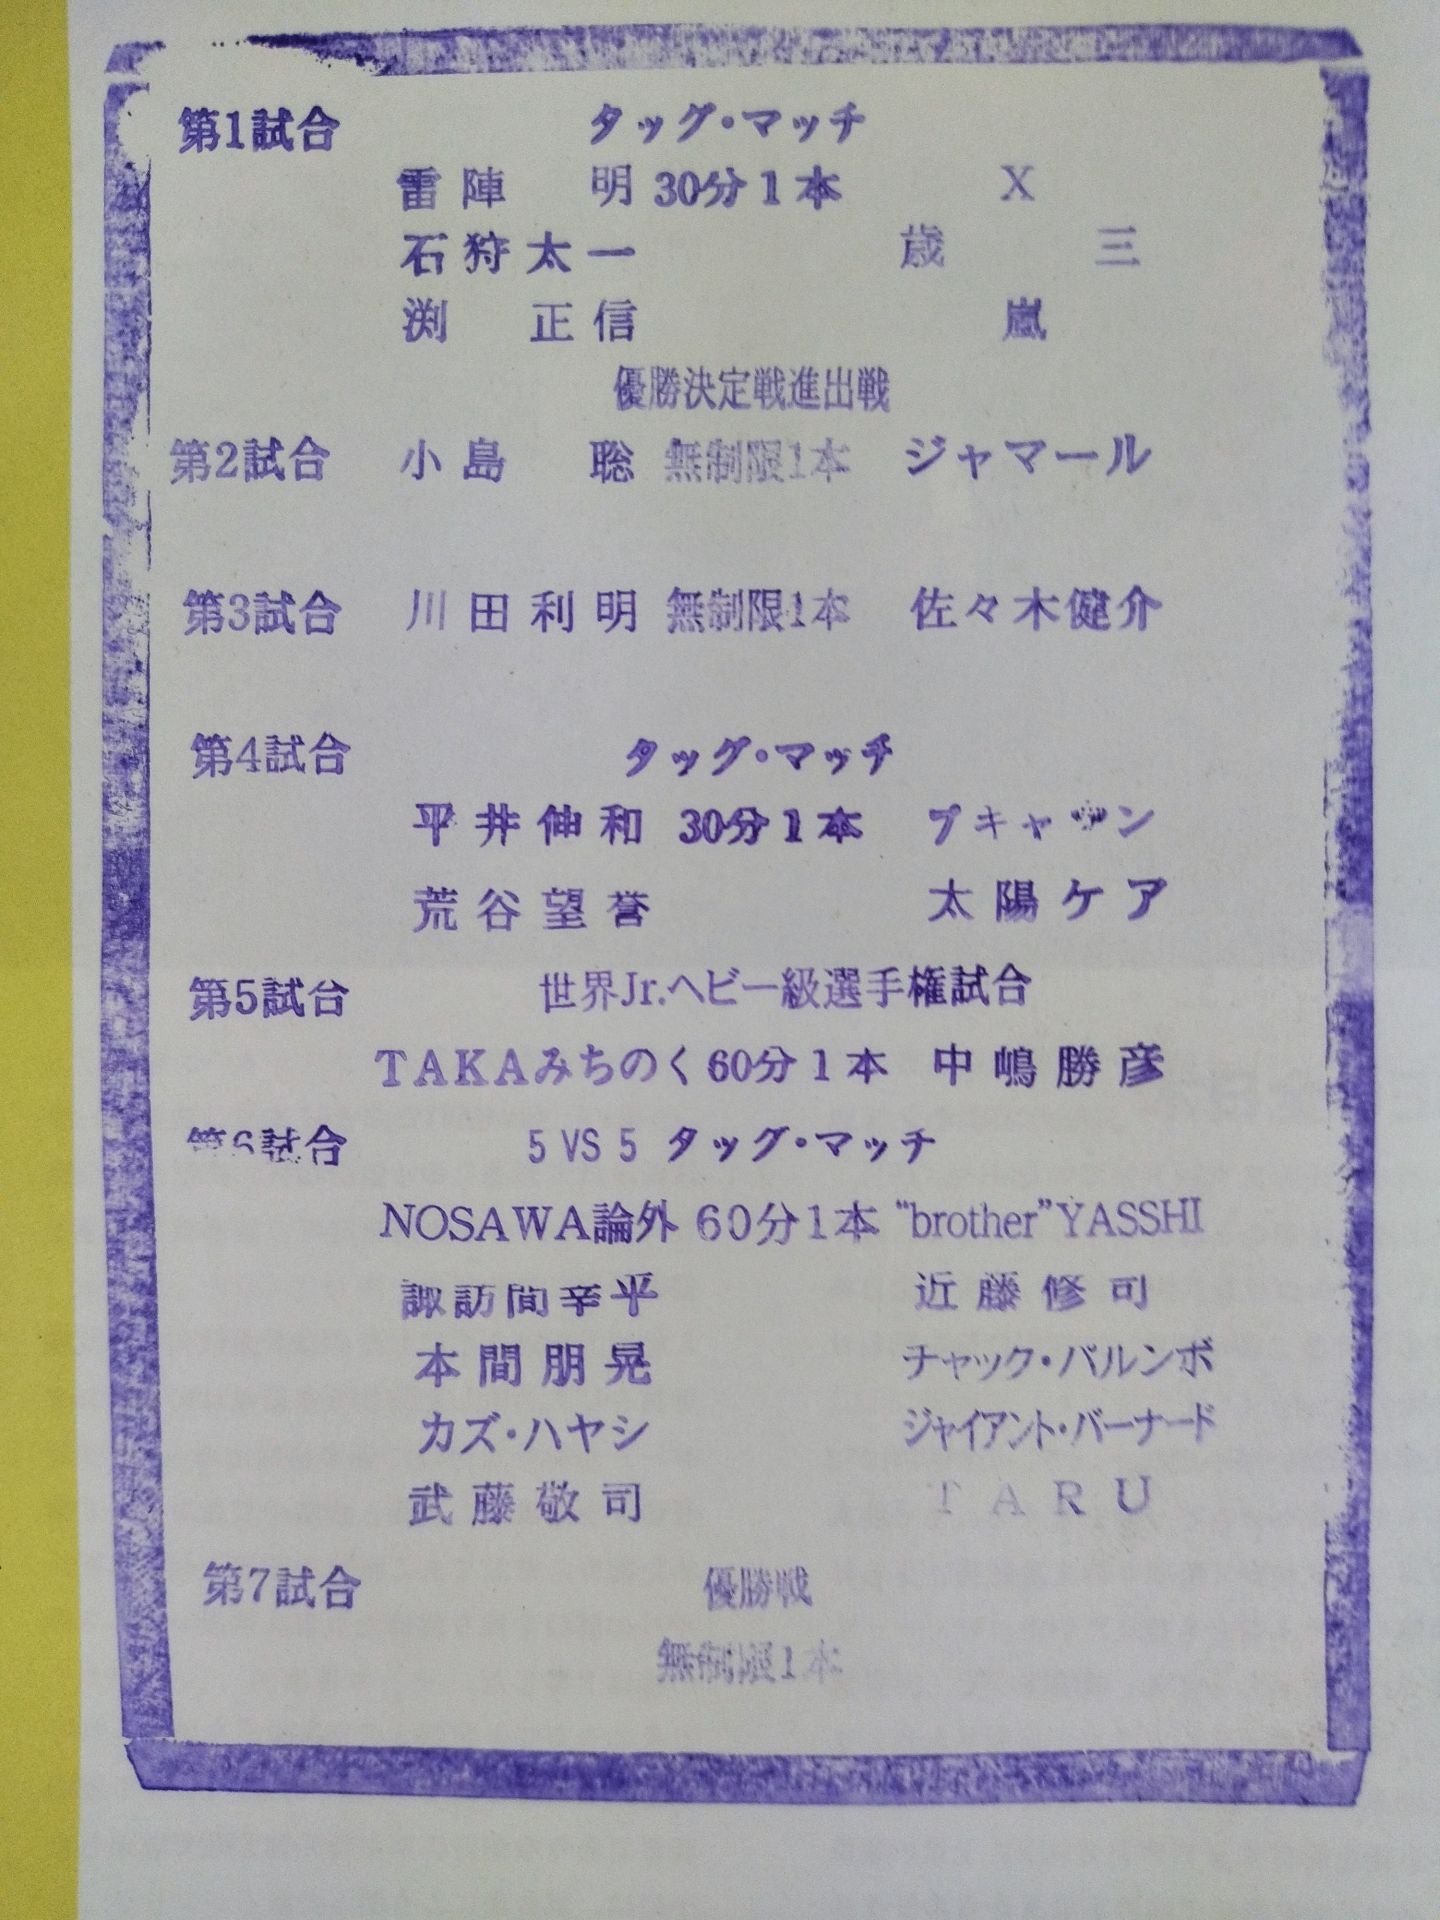 第1試合 タッグ・マッチ
雷陣 明 30分1本 X
石狩太一 歳三
渕 正信 嵐
優勝決定戦進出戦
第2試合 小島 聡 無制限1本 ジャマール
第3試合 川田利明 無制限1本 佐々木健介
第4試合 タッグ・マッチ
平井伸和 30分1本 ブキャナン
荒谷望誉 太陽ケア
第5試合 世界Jr.ヘビー級選手権試合
TAKAみちのく 60分1本 中嶋勝彦
第6試合 5 VS 5 タッグ・マッチ
NOSAWA論外 60分1本 “brother”YASSHI
諏訪間幸平 近藤修司
本間朋晃 チャック・パルンボ
カズ・ハヤシ ジャイアント・バーナード
武藤敬司 TARU
第7試合 優勝戦
無制限1本